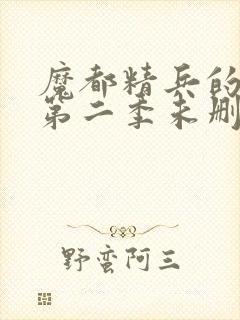 魔都精兵的
第二季未删
野蛮阿三